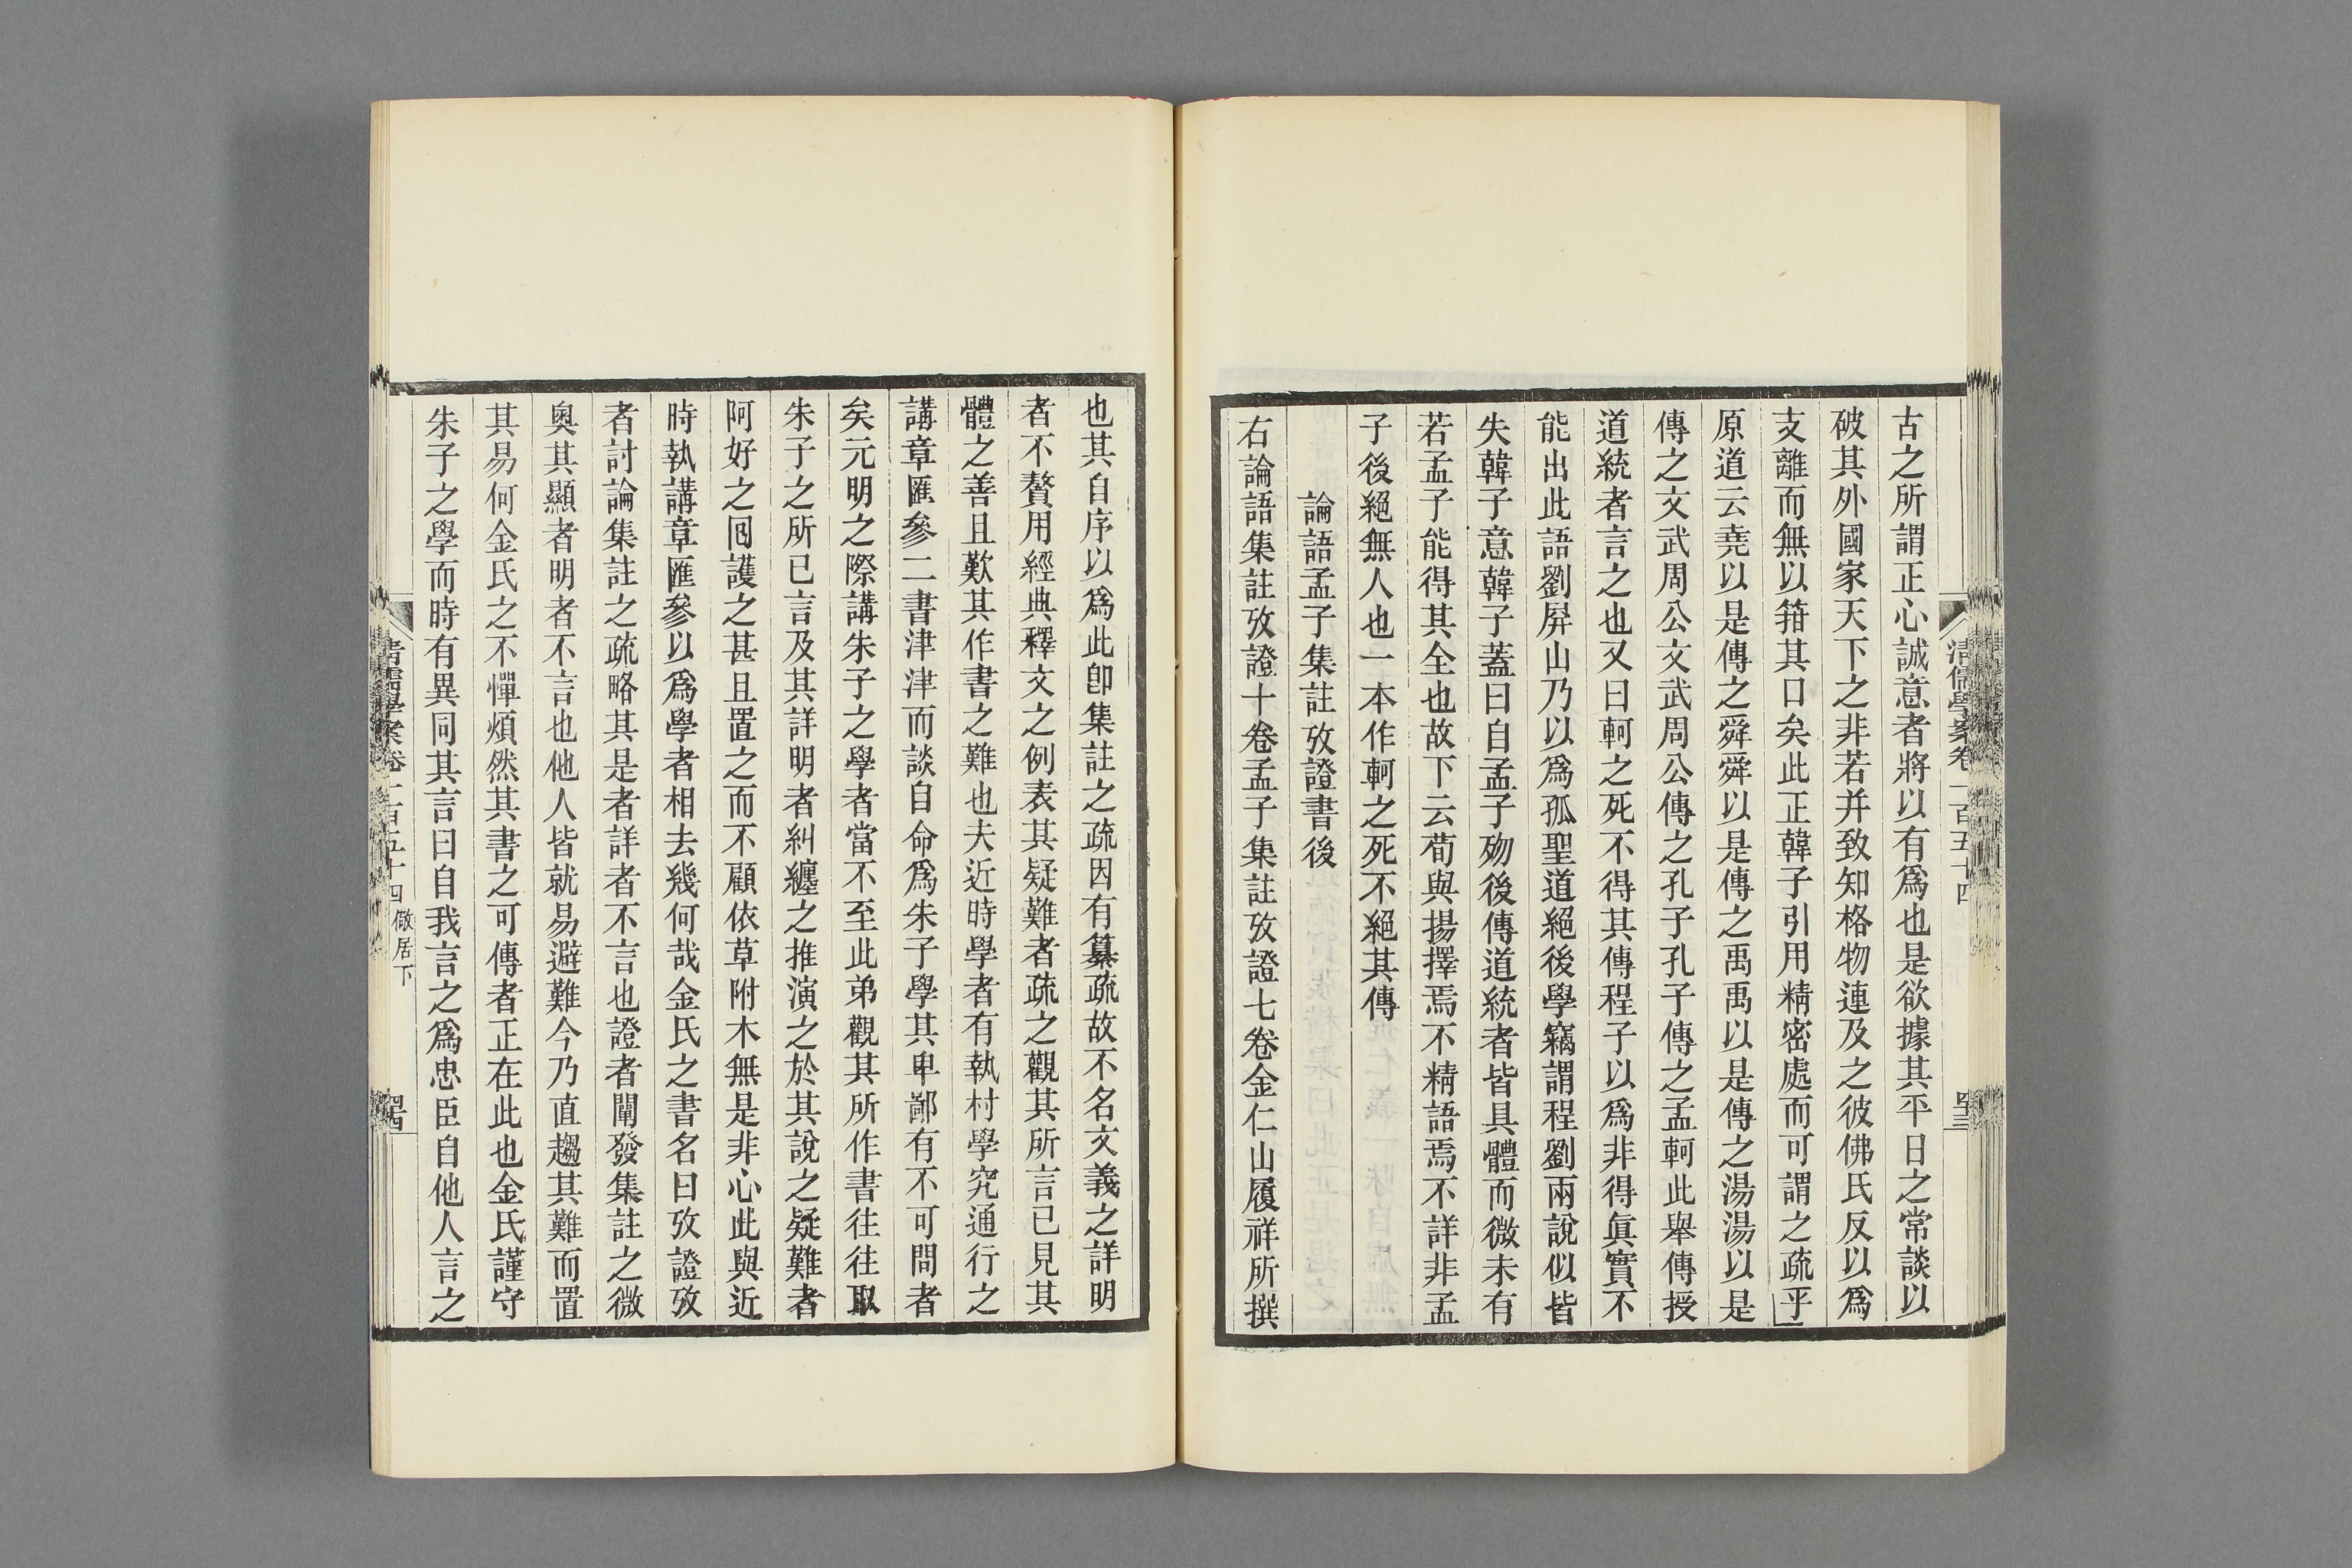 清儒學案卷一百五十四
古之所謂正心誠意者將以有爲也是欲據其平日之常談以
破其外國家天下之非若并致知格物連及之彼佛氏反以爲
支離而無以箝其口矣此正韓子引用精密處而可謂之疏乎
原道云堯以是傳之舜舜以是傳之禹禹以是傳之湯湯以是
傳之文武周公文武周公傳之孔子孔子傳之孟軻此舉傳授
道統者言之也又曰軻之死不得其傳程子以爲非得眞實不
能出此語劉屛山乃以爲孤聖道絕後學竊謂程劉兩說似皆
失韓子意韓子蓋曰自孟子歿後傳道統者皆具體而微未有
若孟子能得其全也故下云荀與揚擇焉不精語焉不詳非孟
子後絕無人也一本作軻之死不絕其傳
論語孟子集註攷證書後
右論語集註攷證十卷孟子集註攷證七卷金仁山履祥所撰
也其自序以爲此卽集註之疏因有纂疏故不名文義之詳明
者不贅用經典釋文之例表其疑難者疏之觀其所言已見其
體之善且歎其作書之難也夫近時學者有執村學究通行之
講章匯參二書津津而談自命爲朱子學其卑鄙有不可問者
矣元明之際講朱子之學者當不至此弟觀其所作書往往取
朱子之所已言及其詳明者糾纏之推演之於其說之疑難者
阿好之囘護之甚且置之而不顧依草附木無是非心此與近
時執講章匯參以爲學者相去幾何哉金氏之書名曰攷證攷
者討論集註之疏略其是者詳者不言也證者闡發集註之微
奧其顯者明者不言也他人皆就易避難今乃直趨其難而置
其易何金氏之不憚煩然其書之可傳者正在此也金氏謹守
朱子之學而時有異同其言曰自我言之爲忠臣自他人言之
清儒學案卷一百五十四 儆居下